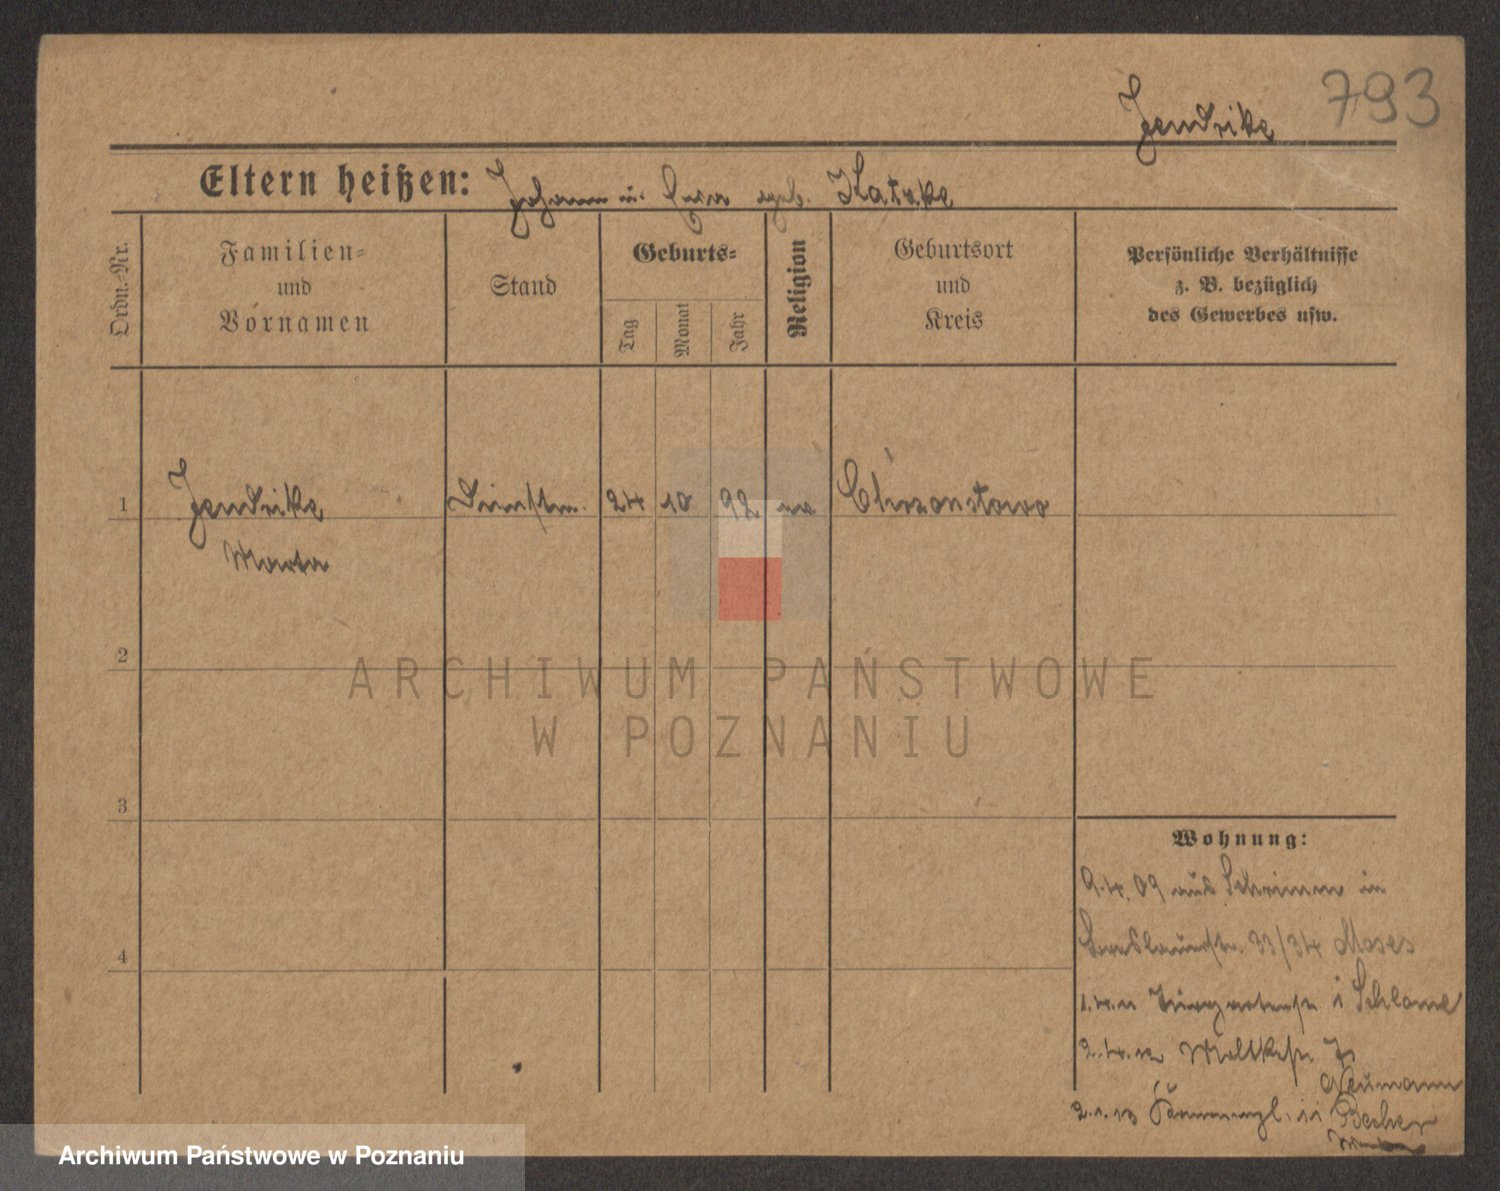 793
Jendrike
Eltern heißen: Johann u. Eva geb. Katzke
Ordn.-Nr.
Familien-
und
Vornamen
Stand
Geburts-
Tag
Monat
Jahr
Religion
Geburtsort
und
Kreis
Persönliche Verhältnisse
z. B. bezüglich
des Gewerbes usw.
1 Jendrike Dienstm. 24 10 92 ev. Chrzonstowo
Marta
2
3
4
Wohnung:
9.4.09 aus Schrimm in
Breslauerstr. 33/34 Moses
1.4.11 Tiergartenstr 1 Schlome
2.4.12 Moltkestr
Neumann
2.1.13 11 Becker
ARCHIWUM PAŃSTWOWE
W POZNANIU
Archiwum Państwowe w Poznaniu